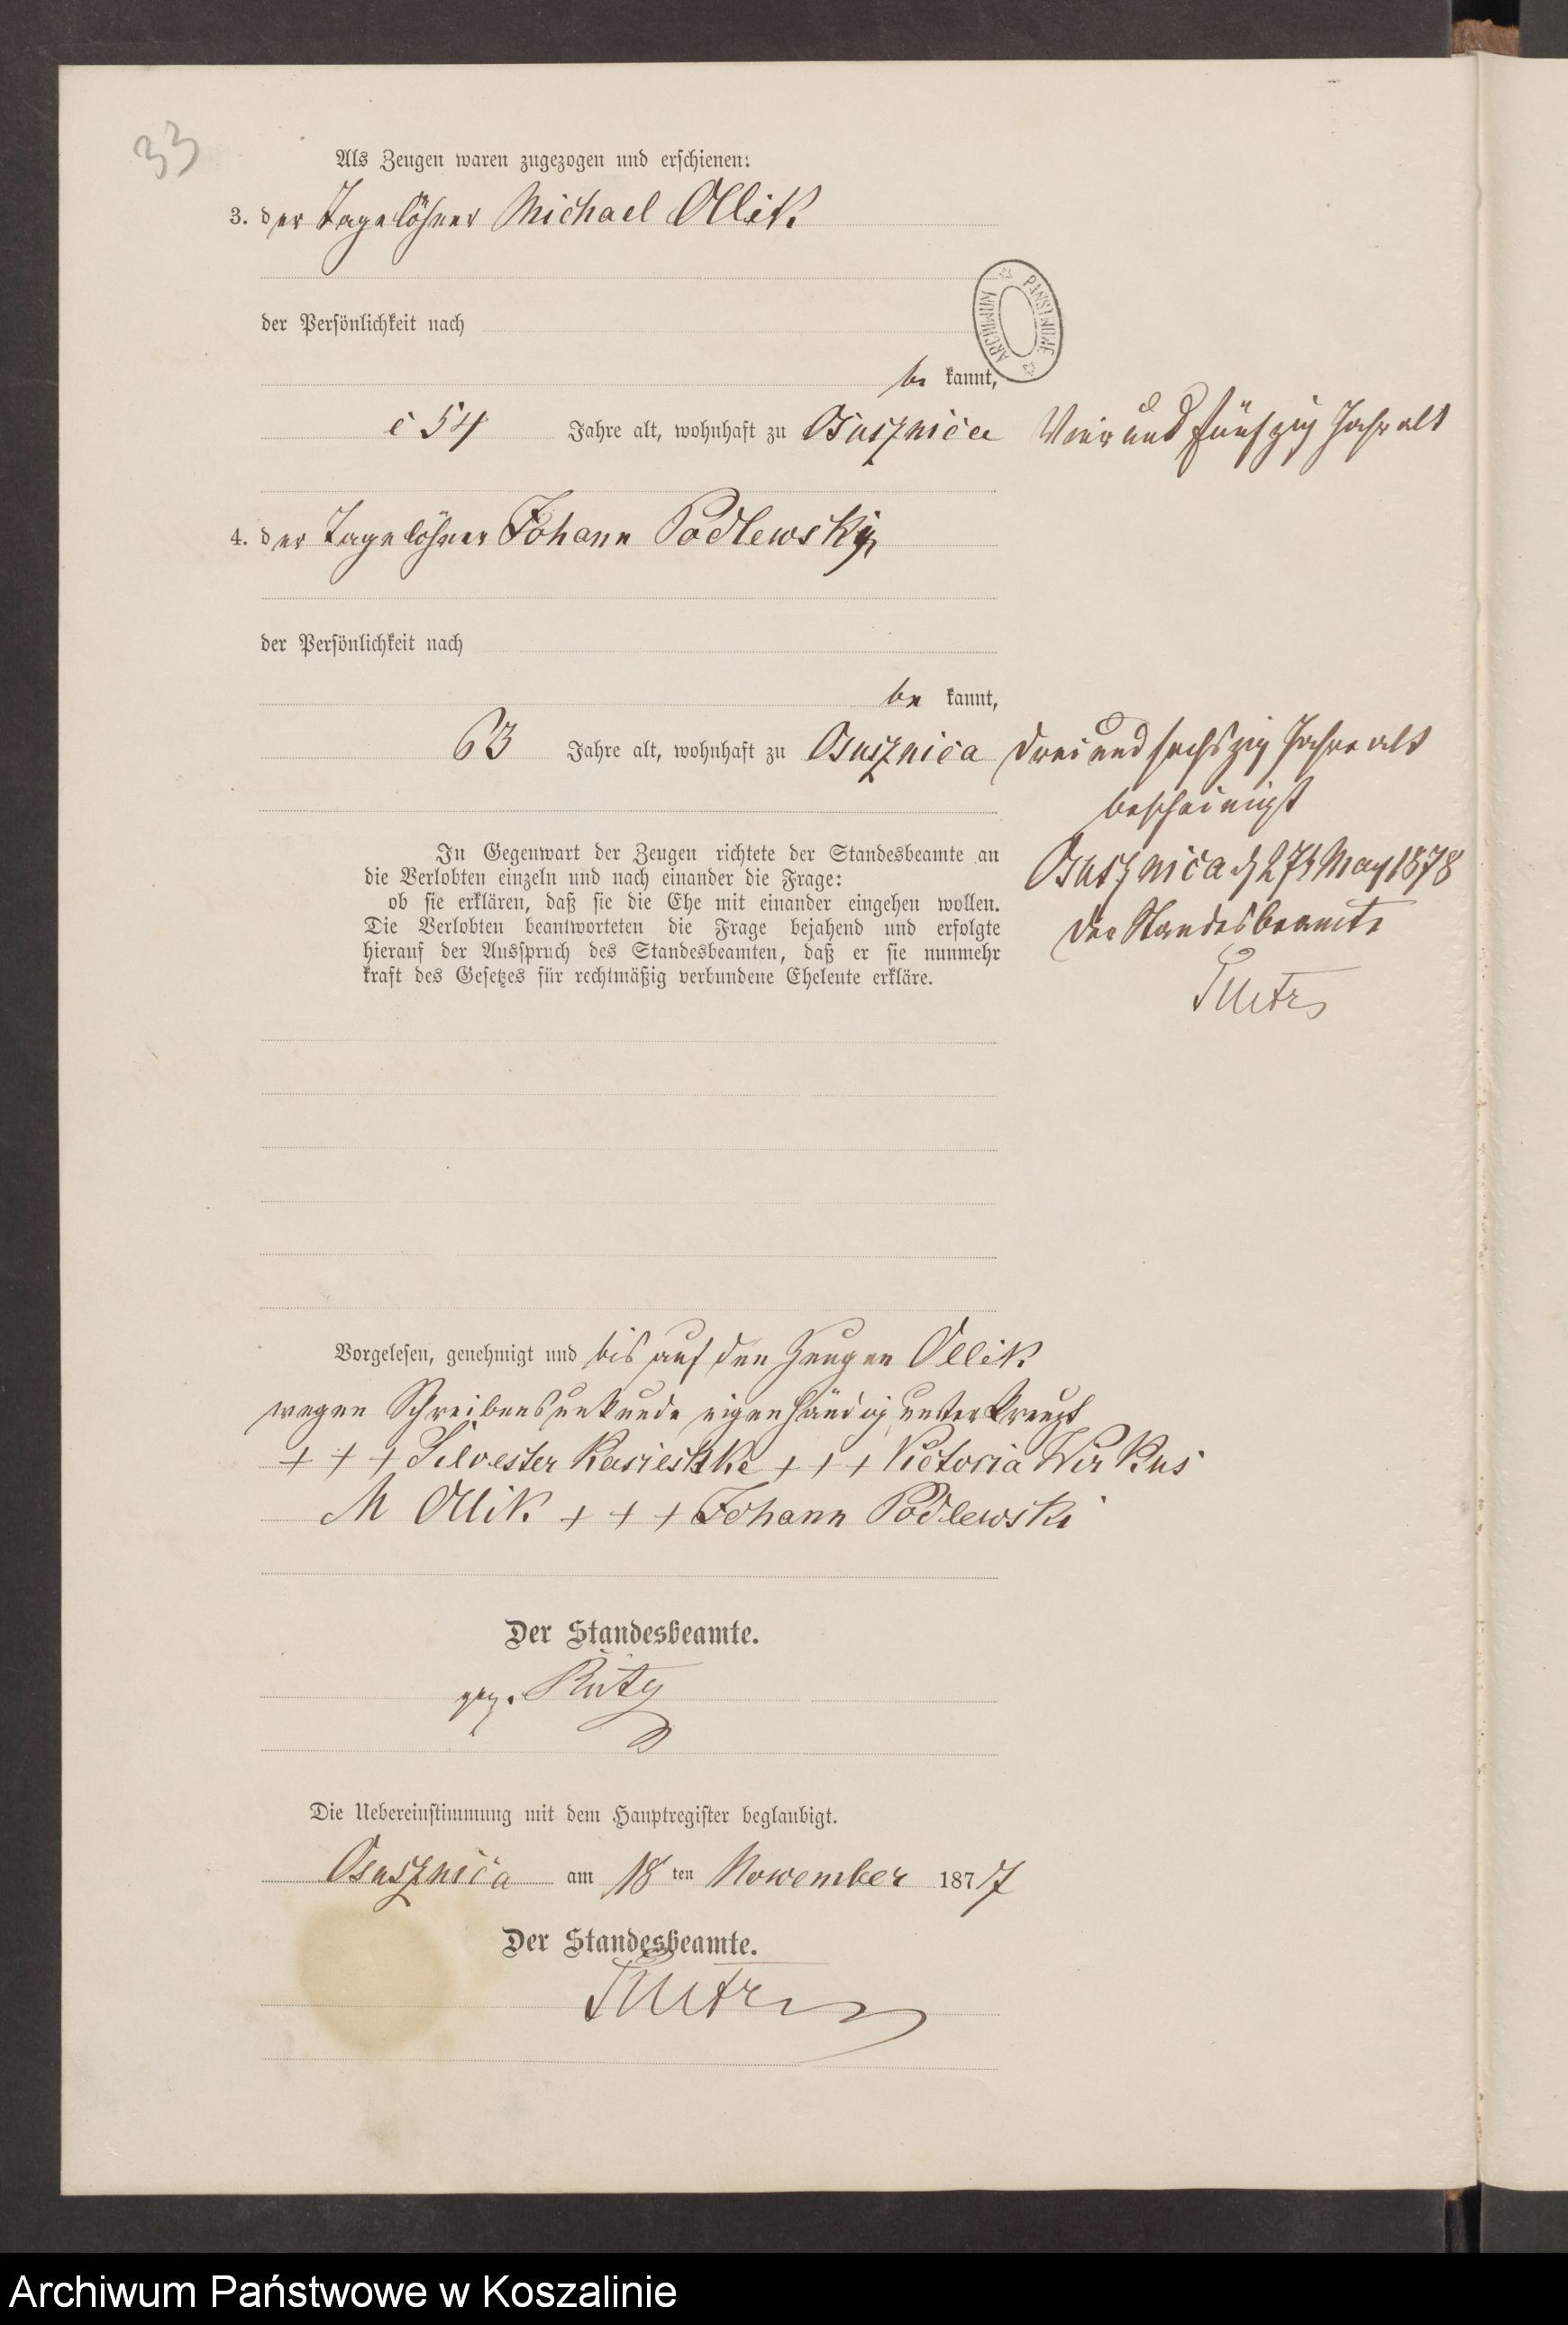 33
Als Zeugen waren zugezogen und erschienen:
3. der Tagelöhner Michael Ollik
der Persönlichkeit nach
ARCHIWUM PAŃSTWOWE
be kannt,
54 Jahre alt, wohnhaft zu Osusznica Vier und fünfzig Jahr alt
4. der Tagelöhner Johann Podlewski
der Persönlichkeit nach
be kannt,
63 Jahre alt, wohnhaft zu Osusznica drei und sechszig Jahre alt
bescheinigt
In Gegenwart der Zeugen richtete der Standesbeamte an
die Verlobten einzeln und nach einander die Frage:
Osusznica d 27t May 1878
ob sie erklären, daß sie die Ehe mit einander eingehen wollen.
Die Verlobten beantworteten die Frage bejahend und erfolgte
der Standesbeamte
hierauf der Ausspruch des Standesbeamten, daß er sie nunmehr
kraft des Gesetzes für rechtmäßig verbundene Eheleute erkläre.
Vorgelesen, genehmigt und bis auf den Zeugen Ollik
wegen Schreibensunkunde eigenhändig unterkreuzt
+ + + Silvester + + + Victoria Wirkus
M Ollik + + + Johann Podlewski
Der Standesbeamte.
gez.
Die Uebereinstimmung mit dem Hauptregister beglaubigt.
Osusznica am 18 ten November 1877
Der Standesbeamte.
Archiwum Państwowe w Koszalinie